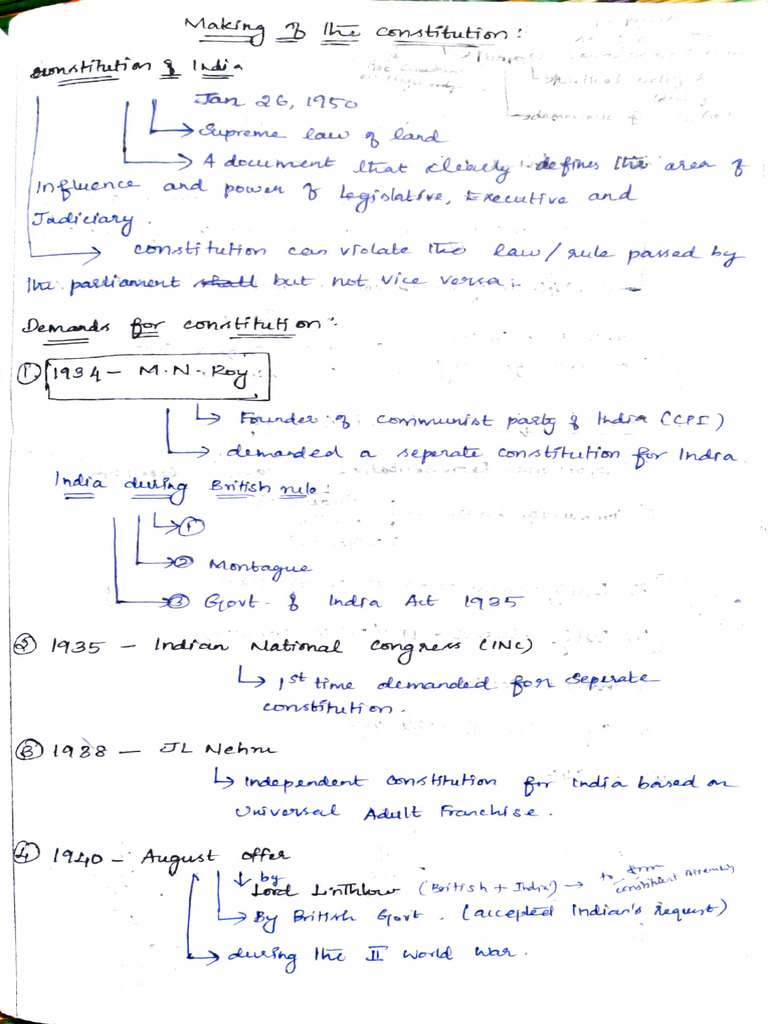 Making of the constitution:
constitution of India
Jan 26, 1950
→ Supreme law of land
→ A document that clearly defines the area of
Influence and power of legislative, Executive and
Judiciary.
→ constitution can violate the law/rule passed by
the parliament shall but not vice versa.
Demands for constitution:
① 1934 - M.N. Roy:
→ Founder of communist party of India (CPI)
→ demanded a seperate constitution for India
India during British rule:
→ ①
→ ② Montague
→ ③ Govt. of India Act 1935
② 1935 - Indian National Congress (INC)
→ 1st time demanded for seperate
constitution.
③ 1938 - JL Nehru
→ Independent constitution for India based on
Universal Adult Franchise.
④ 1940 - August offer
↓ by
Lord Linthlow (British + India) → to form constituent Assembly
→ By British Govt. (accepted Indian's request)
→ during the II world war.